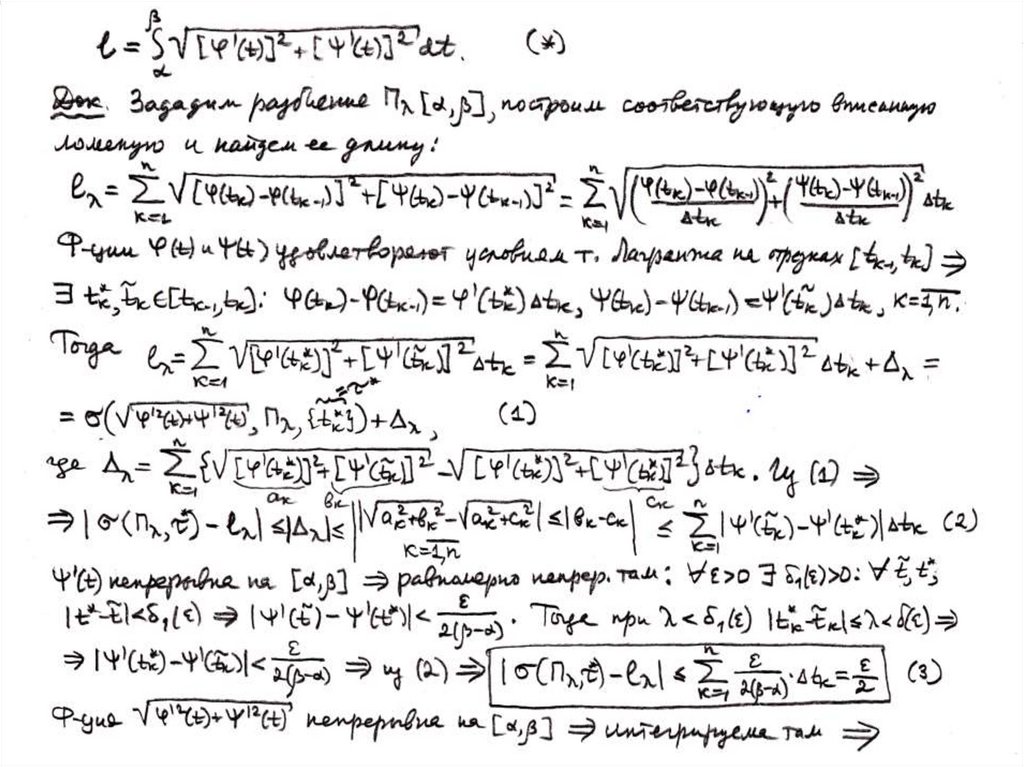 l = ∫_α^β √([φ'(t)]² + [ψ'(t)]²) dt. (*)
Док. Зададим разбиение Π_λ[α,β], построим соответствующую вписанную
ломаную и найдем ее длину:
l_λ = ∑_{k=1}^n √([φ(t_k)-φ(t_{k-1})]² + [ψ(t_k)-ψ(t_{k-1})]²) = ∑_{k=1}^n √(((φ(t_k)-φ(t_{k-1}))/Δt_k)² + ((ψ(t_k)-ψ(t_{k-1}))/Δt_k)²) Δt_k
Ф-ции φ(t) и ψ(t) удовлетворяют условиям т. Лагранжа на отрезках [t_{k-1}, t_k] ⇒
∃ t_k^*, t̃_k ∈ [t_{k-1}, t_k]: φ(t_k)-φ(t_{k-1}) = φ'(t_k^*) Δt_k, ψ(t_k)-ψ(t_{k-1}) = ψ'(t̃_k) Δt_k, k = \overline{1,n}.
Тогда l_λ = ∑_{k=1}^n √([φ'(t_k^*)]² + [ψ'(t̃_k)]²) Δt_k = ∑_{k=1}^n √([φ'(t_k^*)]² + [ψ'(t_k^*)]²) Δt_k + Δ_λ =
= σ(√(φ'²(t)+ψ'²(t)), Π_λ, {t_k^*} = τ^*) + Δ_λ, (1)
где Δ_λ = ∑_{k=1}^n {√([φ'(t_k^*)]² + [ψ'(t̃_k)]²) - √([φ'(t_k^*)]² + [ψ'(t_k^*)]²)} Δt_k. Из (1) ⇒
a_k b_k c_k
⇒ |σ(Π_λ, τ^*) - l_λ| ≤ |Δ_λ| ≤ ||√(a_k²+b_k²) - √(a_k²+c_k²)| ≤ |b_k - c_k|| ≤ ∑_{k=1}^n |ψ'(t̃_k) - ψ'(t_k^*)| Δt_k (2)
k = \overline{1,n}
ψ'(t) непрерывна на [α,β] ⇒ равномерно непрер. там: ∀ε>0 ∃ δ₁(ε)>0: ∀ t̃, t^*:
|t^*-t̃| < δ₁(ε) ⇒ |ψ'(t̃) - ψ'(t^*)| < ε/(2(β-α)). Тогда при λ < δ₁(ε) |t_k^* - t̃_k| ≤ λ < δ(ε) ⇒
⇒ |ψ'(t_k^*) - ψ'(t̃_k)| < ε/(2(β-α)) ⇒ из (2) ⇒ |σ(Π_λ, τ^*) - l_λ| ≤ ∑_{k=1}^n ε/(2(β-α)) · Δt_k = ε/2 (3)
Ф-ция √(φ'²(t)+ψ'²(t)) непрерывна на [α,β] ⇒ интегрируема там ⇒